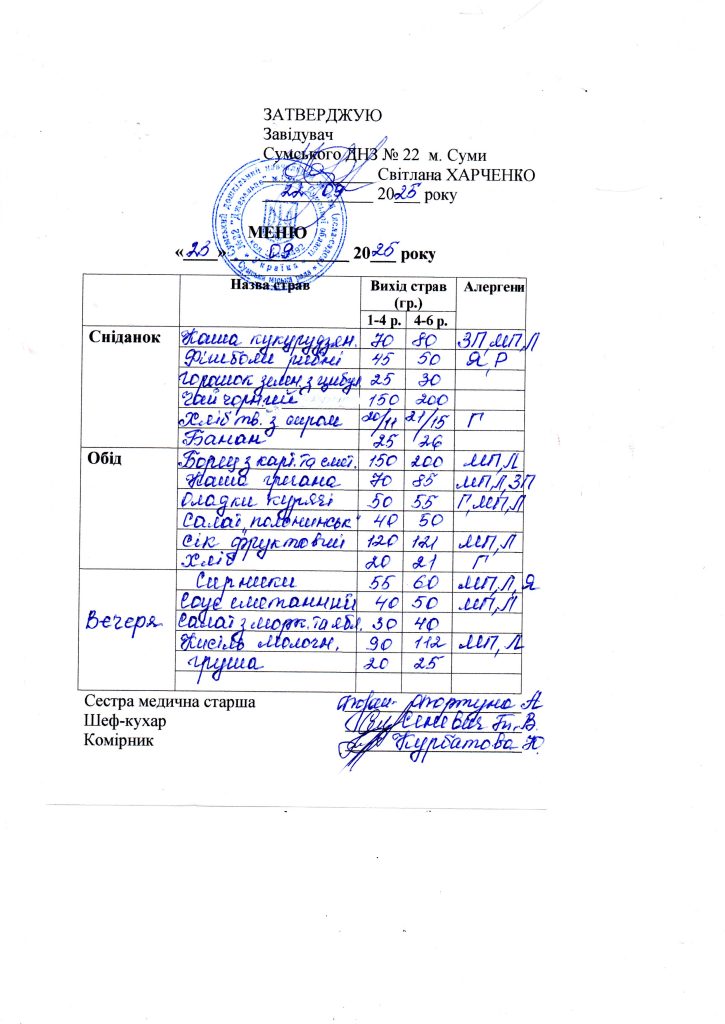 ЗАТВЕРДЖУЮ
Завідувач
Сумського ДНЗ № 22 м. Суми
Світлана ХАРЧЕНКО
22 09 2025 року
МЕНЮ
«23» 09 2025 року
Назва страв Вихід страв (гр.) Алергени
1-4 р. 4-6 р.
Сніданок Каша кукурудзян. 70 80 ЗП МП,Л
Фішболи рибні 45 50 Я, Р
Горошок зелен. з цибул 25 30
Чай чорний 150 200
Хліб тв. з сиром 20/11 21/15 Г
Банан 25 26
Обід Борщ з карт. та смет. 150 200 МП,Л
Каша гречана 70 85 МП,Л,ЗП
Оладки курячі 50 55 Г,МП,Л
Салат „полонинськ" 40 50
Сік фруктовий 120 121 МП,Л
Хліб 20 21 Г
Вечеря Сирники 55 60 МП,Л,Я
Соус сметанний 40 50 МП,Л
Салат з морк. та ябл. 30 40
Кисіль молочн. 90 112 МП,Л
груша 20 25
Сестра медична старша Фортуна А
Шеф-кухар В.
Комірник Курбатова Ю.